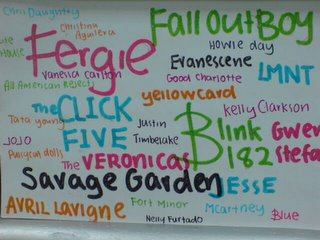 Chris Daughtry
Christina
Aguilera
Fall Out Boy
House
Fergie
Howie day
Vanessa Carlton
Evanescence
All American Rejects
Good Charlotte
LMNT
yellowcard
The CLICK
FIVE
Kelly Clarkson
Tata young
Justin
Timberlake
Blink
182
Gwen
Stefa
JOJO
Pussycat dolls
The VERONICAS
Savage Garden
JESSE
MCartney
AVRIL LAVIGNE
Fort Minor
Nelly Furtado
Blue